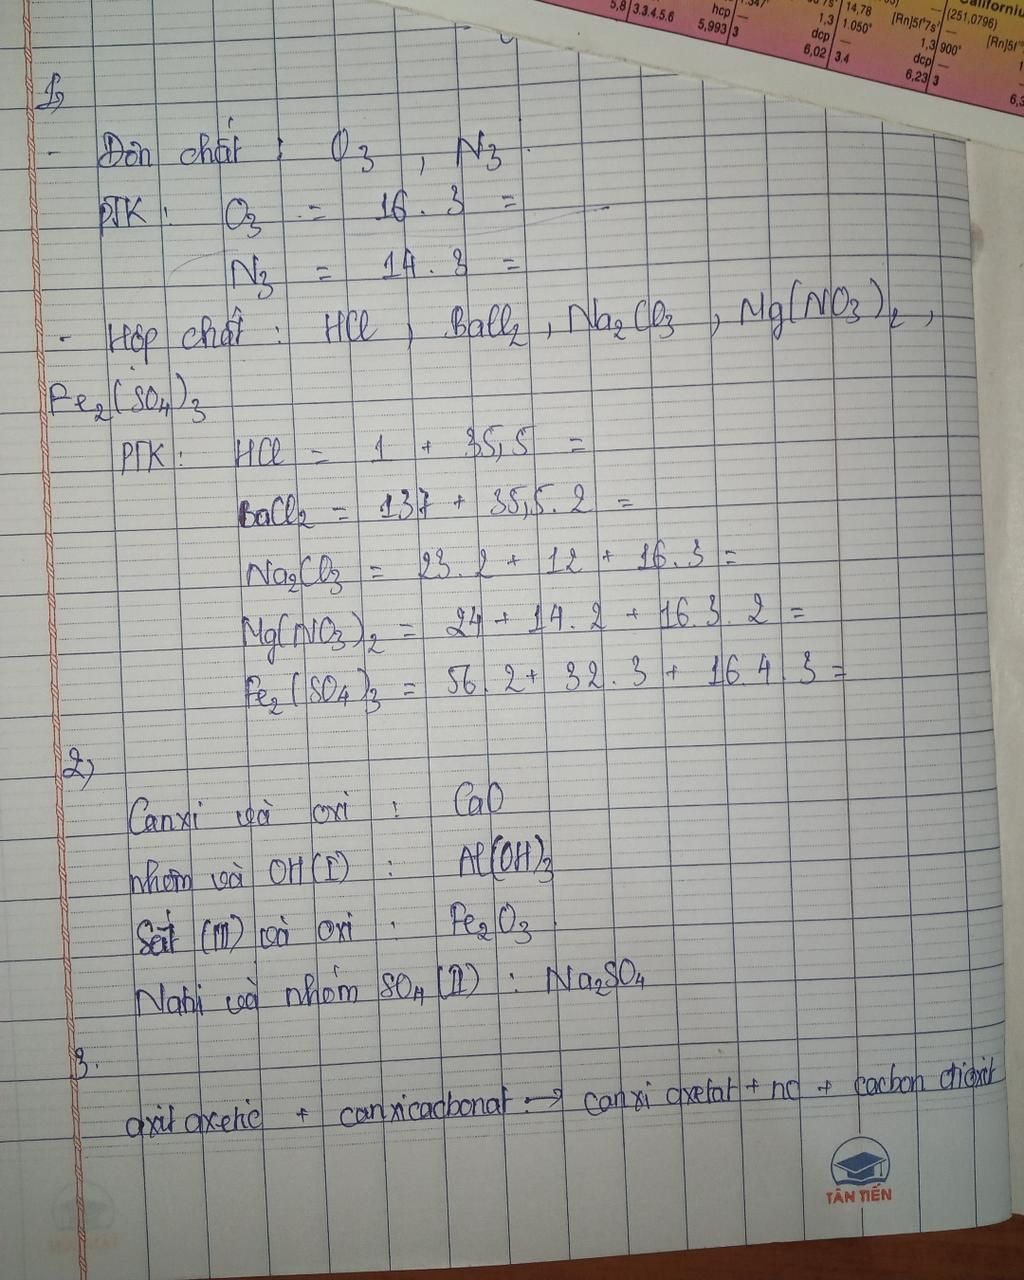 5,8 3.3.4.5.6
hcp —
5,993 3
1,3 1.050°
dcp —
6,02 3.4
14,78
[Rn]5f⁷7s²
1,3 900°
dcp —
6,23 3
(251,0796)
Californiu
1,
- Đơn chất : O₃ , N₃
PTK : O₃ = 16 . 3 =
N₃ = 14 . 3 =
- Hợp chất : HCl , BaCl₂ , Na₂CO₃ , Mg(NO₃)₂ ,
Fe₂(SO₄)₃
PTK : HCl = 1 + 35,5 =
BaCl₂ = 137 + 35,5 . 2 =
Na₂CO₃ = 23 . 2 + 12 + 16 . 3 =
Mg(NO₃)₂ = 24 + 14 . 2 + 16 . 3 . 2 =
Fe₂(SO₄)₃ = 56 . 2 + 32 . 3 + 16 . 4 . 3 =
2,
Canxi và oxi : CaO
nhôm và OH (I) : Al(OH)₃
Sắt (III) và oxi : Fe₂O₃
Natri và nhóm SO₄ (II) : Na₂SO₄
3.
axit axetic + canxicacbonat → canxi axetat + nc + cacbon đioxit
TÂN TIẾN